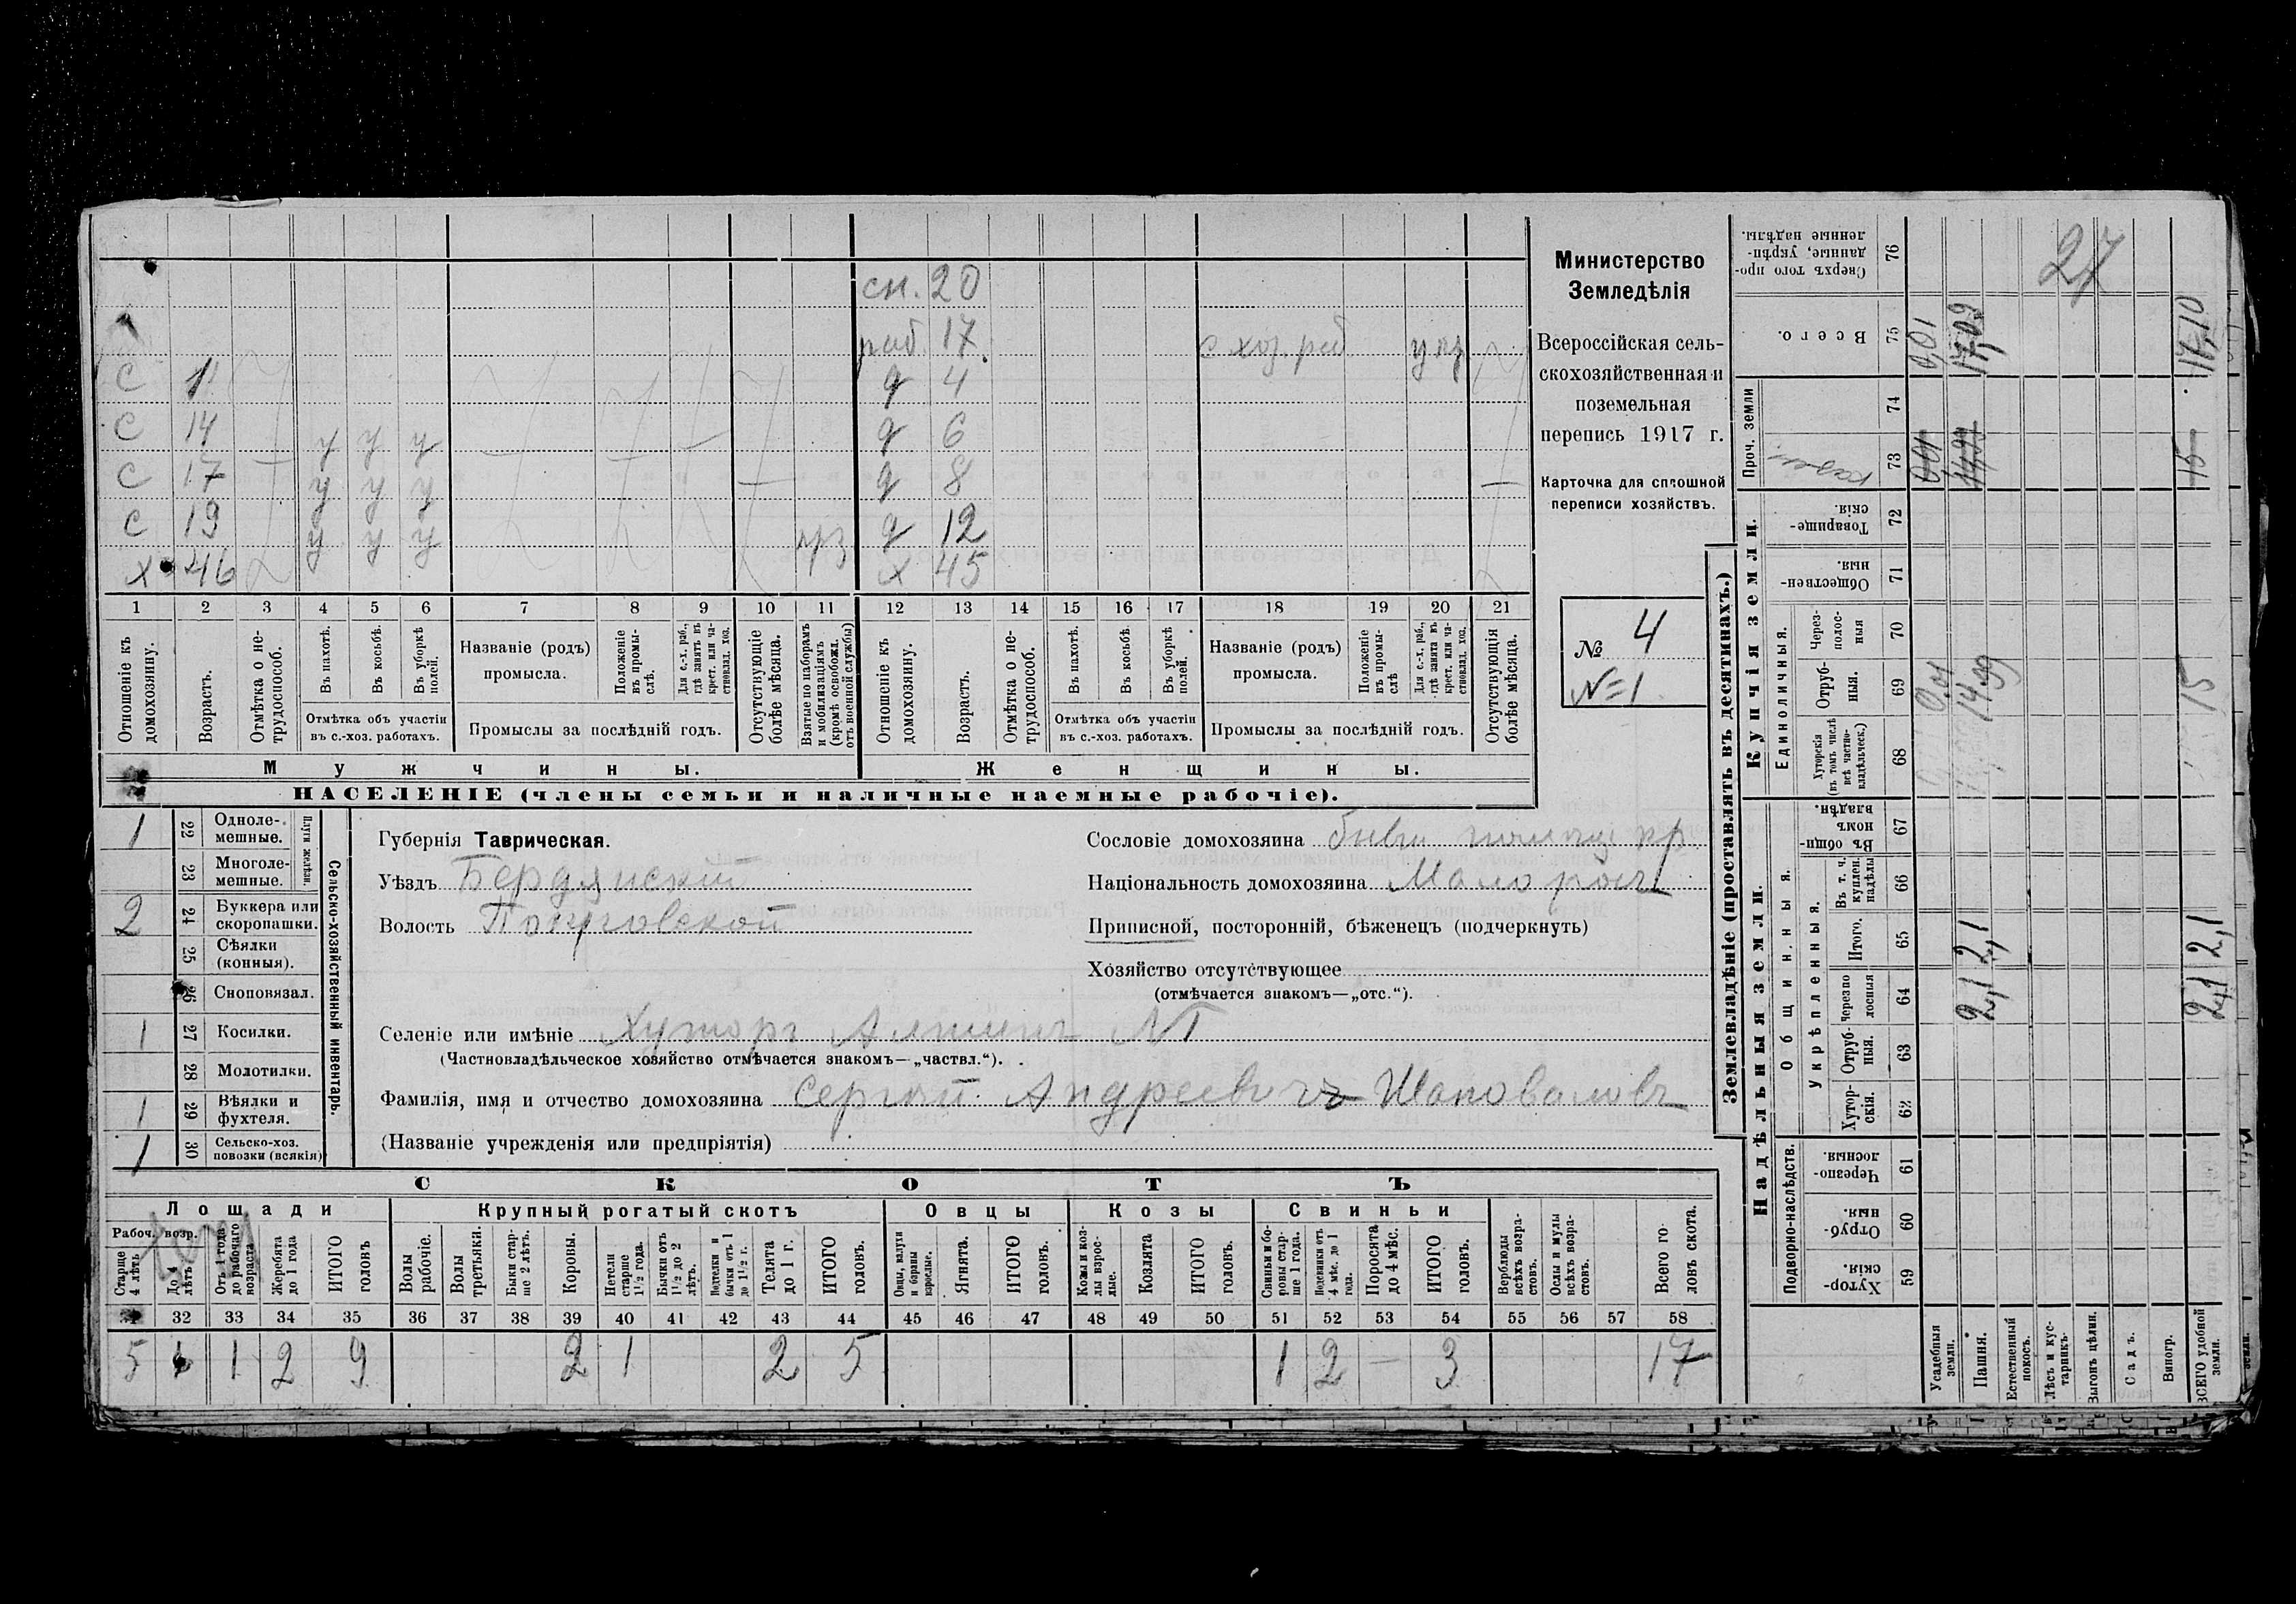 сн. 20
раб. 17 с хоз. раб
С 11 д 4
С 14 у у у д 6
С 17 у у у д 8
С 19 у у у д 12
х 46 х 45
1 2 3 4 5 6 7 8 9 10 11 12 13 14 15 16 17 18 19 20 21
Отношеніе къ домохозяину.
Возрастъ.
Отмѣтка о не-
трудоспособ.
Въ пахотѣ.
Въ косьбѣ.
Въ уборкѣ полей.
Отмѣтка объ участіи
въ с.-хоз. работахъ.
Названіе (родъ)
промысла.
Положеніе
въ промы-
слѣ.
Для с.-х. раб.,
гдѣ занятъ въ
крест. или ча-
стновлад. хоз.
Промыслы за послѣдній годъ.
Отсутствующіе
болѣе мѣсяца.
Взятые по наборамъ
и мобилизаціямъ
(кромѣ освобожд.
отъ военной службы)
Отношеніе къ
домохозяину.
Возрастъ.
Отмѣтка о не-
трудоспособ.
Въ пахотѣ.
Въ косьбѣ.
Въ уборкѣ
полей.
Отмѣтка объ участіи
въ с.-хоз. работахъ.
Названіе (родъ)
промысла.
Положеніе
въ промы-
слѣ
Для с.-х. раб.,
гдѣ занята въ
крест. или ча-
стновлад. хоз.
Промыслы за послѣдній годъ.
Отсутствующія
болѣе мѣсяца.
Мужчины.
Женщины.
НАСЕЛЕНІЕ (члены семьи и наличные наемные рабочіе).
Министерство
Земледѣлія
Всероссійская сель-
скохозяйственная и
поземельная
перепись 1917 г.
Карточка для сплошной
переписи хозяйствъ.
№ 4
№1
1 22 Одноле-
мешные.
23 Многоле-
мешные.
Плуги желѣзн.
2 24 Буккера или
скоропашки.
25 Сѣялки
(конныя).
26 Сноповязал.
1 27 Косилки.
28 Молотилки.
1 29 Вѣялки и
фухтеля.
1 30 Сельско-хоз.
повозки (всякія)
Сельско-хозяйственный инвентарь.
Губернія Таврическая.
Уѣздъ Бердянскій
Волость
Сословіе домохозяина
Національность домохозяина Малоросъ
Приписной, посторонній, бѣженецъ (подчеркнуть)
Хозяйство отсутствующее
(отмѣчается знакомъ—„отс.“).
Селеніе или имѣніе Хуторъ
(Частновладѣльческое хозяйство отмѣчается знакомъ—„частвл.“).
Фамилія, имя и отчество домохозяина Сергѣй Андреевичъ Шаповаловъ
(Названіе учрежденія или предпріятія)
СКОТЪ
Лошади
Крупный рогатый скотъ
Овцы
Козы
Свиньи
Рабоч. возр.
Старше
4 лѣтъ
До 4
лѣтъ
Отъ 1 года
до рабочаго
возраста
Жеребята
до 1 года
ИТОГО
головъ
Волы
рабочіе.
Волы
третьяки.
Быки стар-
ше 2 лѣтъ.
Коровы.
Нетели
старше
1½ года.
Бычки отъ
1½ до 2
лѣтъ.
Подтелки и
бычки отъ 1
до 1½ г.
Телята
до 1 г.
ИТОГО
головъ.
Овцы, валухи
и бараны
взрослые.
Ягнята.
ИТОГО
головъ.
Козы и коз-
лы взрос-
лые.
Козлята
ИТОГО
головъ.
Свиньи и бо-
ровы стар-
ше 1 года.
Подсвинки отъ
4 мѣс. до 1
года.
Поросята
до 4 мѣс.
ИТОГО
головъ.
Верблюды
всѣхъ возра-
стовъ.
Ослы и мулы
всѣхъ возра-
стовъ.
Всего го-
ловъ скота.
32 33 34 35 36 37 38 39 40 41 42 43 44 45 46 47 48 49 50 51 52 53 54 55 56 57 58
5 1 1 2 9 2 1 2 5 1 2 — 3 17
Землевладѣніе (проставлять въ десятинахъ.)
Купчія земли.
Надѣльныя земли.
Сверхъ того про-
данные, укрѣп-
ленные надѣлы. 76
27
Всего. 75 0,01 17,09 17,10
Проч. земли
74
73 0,01 14,99 15
Товарище-
скія. 72
Обществен-
ныя. 71
Единоличныя.
Через-
полос-
ныя 70
Отруб-
ныя. 69 0,01 14,99 15
Хуторскія
(въ томъ числѣ
всѣ частно-
владѣльческ.) 68
Общинныя.
Въ общин-
номъ
владѣн. 67
Укрѣпленныя.
Въ т. ч.
куплен.
надѣлы 66
Итого. 65 2,1 2,1
Черезпо
лосныя 64 2,1 2,1
Отруб-
ныя. 63
Хутор-
скія. 62
Подворно-наслѣдств.
Черезпо-
лосныя 61
Отруб-
ныя. 60
Хутор-
скія. 59
Усадебныя
земли.
Пашня.
Естественный
покосъ.
Лѣсъ и кус-
тарникъ.
Выгонъ цѣлин.
Садъ.
Виногр.
ВСЕГО удобной
земли.